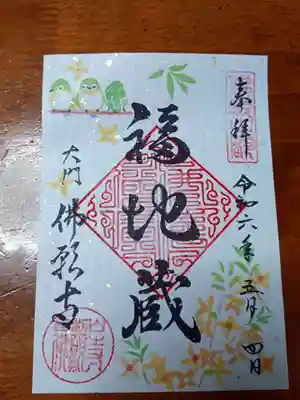 奉拝
令和六年五月四日
福地蔵
大門 佛願寺